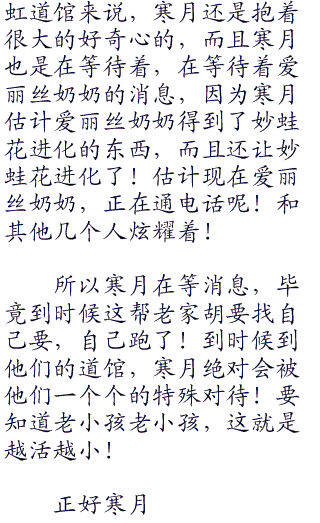 虹道馆来说，寒月还是抱着
很大的好奇心的，而且寒月
也是在等待着，在等待着爱
丽丝奶奶的消息，因为寒月
估计爱丽丝奶奶得到了妙蛙
花进化的东西，而且还让妙
蛙花进化了！估计现在爱丽
丝奶奶，正在通电话呢！和
其他几个人炫耀着！
所以寒月在等消息，毕
竟到时候这帮老家胡要找自
己要，自己跑了！到时候到
他们的道馆，寒月绝对会被
他们一个个的特殊对待！要
知道老小孩老小孩，这就是
越活越小！
正好寒月